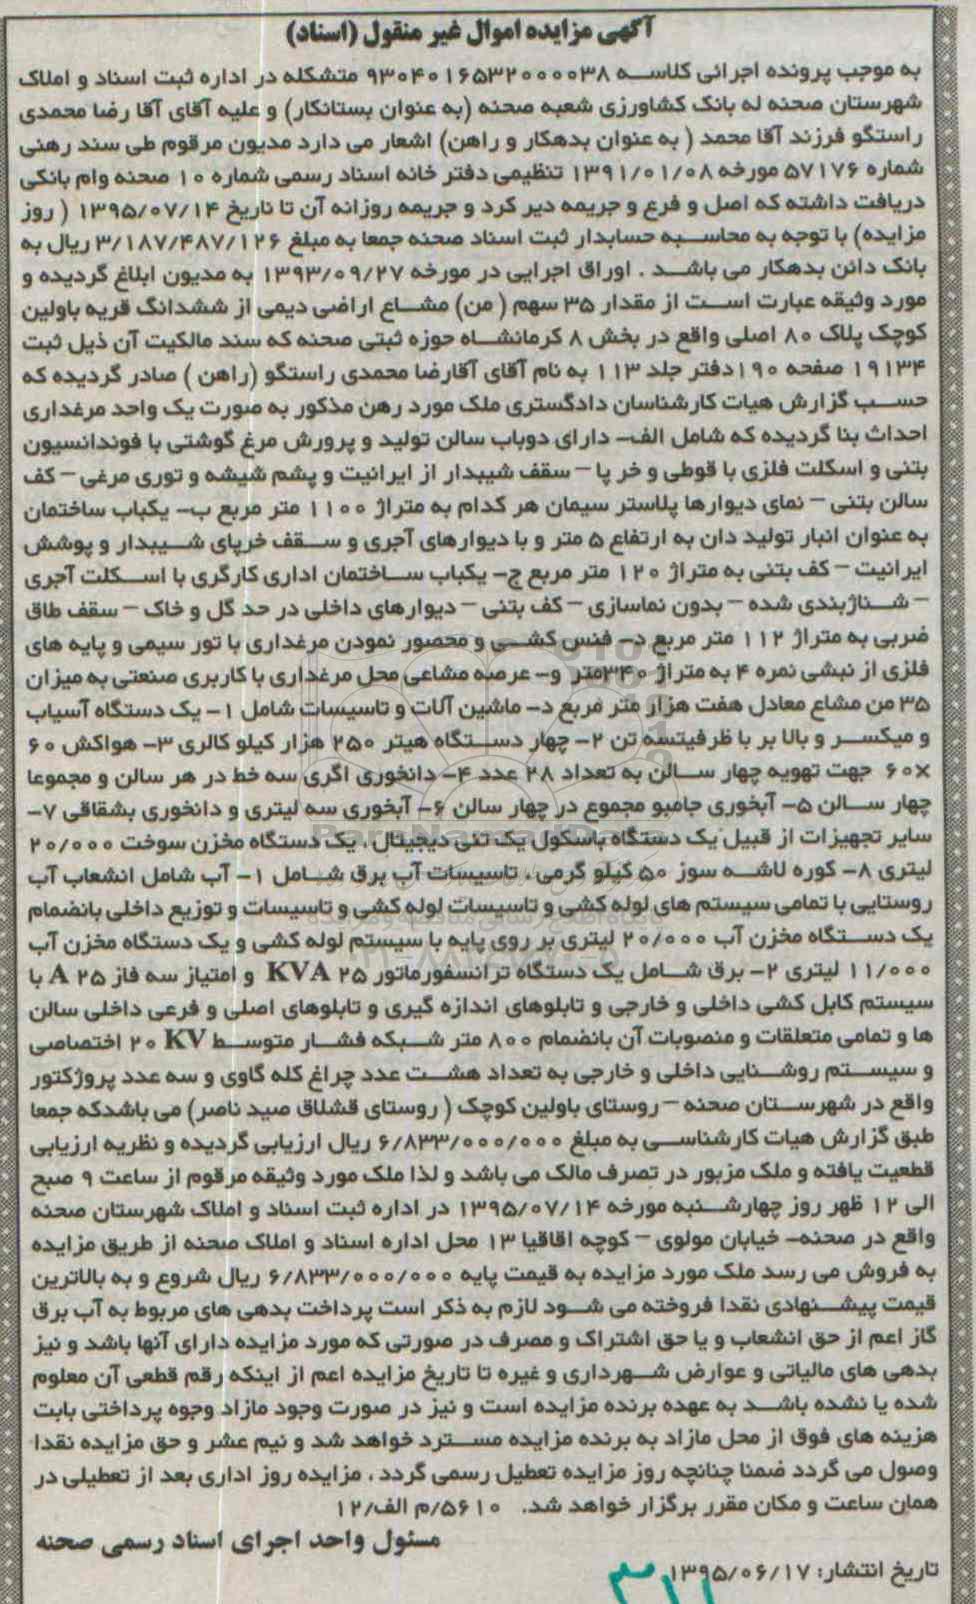 آگهی مزایده اموال غیر منقول (اسناد)
به موجب پرونده اجرائی کلاسه ۹۳۰۴۰۱۶۵۳۲۰۰۰۰۳۸ متشکله در اداره ثبت اسناد و املاک
شهرستان صحنه له بانک کشاورزی شعبه صحنه (به عنوان بستانکار) و علیه آقای آقا رضا محمدی
راستگو فرزند آقا محمد ( به عنوان بدهکار و راهن) اشعار می دارد مدیون مرقوم طی سند رهنی
شماره ۵۷۱۷۶ مورخه ۱۳۹۱/۰۱/۰۸ تنظیمی دفتر خانه اسناد رسمی شماره ۱۰ صحنه وام بانکی
دریافت داشته که اصل و فرع و جریمه دیر کرد و جریمه روزانه آن تا تاریخ ۱۳۹۵/۰۷/۱۴ ( روز
مزایده) با توجه به محاسبه حسابدار ثبت اسناد صحنه جمعا به مبلغ ۳/۱۸۷/۴۸۷/۱۲۶ ریال به
بانک دائن بدهکار می باشد . اوراق اجرایی در مورخه ۱۳۹۳/۰۹/۲۷ به مدیون ابلاغ گردیده و
مورد وثیقه عبارت است از مقدار ۳۵ سهم ( من) مشاع اراضی دیمی از ششدانگ قریه باولین
کوچک پلاک ۸۰ اصلی واقع در بخش ۸ کرمانشاه حوزه ثبتی صحنه که سند مالکیت آن ذیل ثبت
۱۹۱۳۴ صفحه ۱۹۰دفتر جلد ۱۱۳ به نام آقای آقارضا محمدی راستگو (راهن ) صادر گردیده که
حسب گزارش هیات کارشناسان دادگستری ملک مورد رهن مذکور به صورت یک واحد مرغداری
احداث بنا گردیده که شامل الف- دارای دوباب سالن تولید و پرورش مرغ گوشتی با فوندانسیون
بتنی و اسکلت فلزی با قوطی و خر پا – سقف شیبدار از ایرانیت و پشم شیشه و توری مرغی – کف
سالن بتنی – نمای دیوارها پلاستر سیمان هر کدام به متراژ ۱۱۰۰ متر مربع ب- یکباب ساختمان
به عنوان انبار تولید دان به ارتفاع ۵ متر و با دیوارهای آجری و سقف خرپای شیبدار و پوشش
ایرانیت – کف بتنی به متراژ ۱۲۰ متر مربع ج- یکباب ساختمان اداری کارگری با اسکلت آجری
– شناژبندی شده – بدون نماسازی – کف بتنی – دیوارهای داخلی در حد گل و خاک – سقف طاق
ضربی به متراژ ۱۱۲ متر مربع د- فنس کشی و محصور نمودن مرغداری با تور سیمی و پایه های
فلزی از نبشی نمره ۴ به متراژ ۳۴۰متر و- عرصه مشاعی محل مرغداری با کاربری صنعتی به میزان
۳۵ من مشاع معادل هفت هزار متر مربع د- ماشین آلات و تاسیسات شامل ۱- یک دستگاه آسیاب
و میکسر و بالا بر با ظرفیتسه تن ۲- چهار دستگاه هیتر ۲۵۰ هزار کیلو کالری ۳- هواکش ۶۰
×۶۰ جهت تهویه چهار سالن به تعداد ۲۸ عدد ۴- دانخوری اگری سه خط در هر سالن و مجموعا
چهار سالن ۵- آبخوری جامبو مجموع در چهار سالن ۶- آبخوری سه لیتری و دانخوری بشقاقی ۷-
سایر تجهیزات از قبیل یک دستگاه باسکول یک تنی دیجیتال ، یک دستگاه مخزن سوخت ۲۰/۰۰۰
لیتری ۸- کوره لاشه سوز ۵۰ کیلو گرمی ، تاسیسات آب برق شامل ۱- آب شامل انشعاب آب
روستایی با تمامی سیستم های لوله کشی و تاسیسات لوله کشی و تاسیسات و توزیع داخلی بانضمام
یک دستگاه مخزن آب ۲۰/۰۰۰ لیتری بر روی پایه با سیستم لوله کشی و یک دستگاه مخزن آب
۱۱/۰۰۰ لیتری ۲- برق شامل یک دستگاه ترانسفورماتور ۲۵ KVA و امتیاز سه فاز ۲۵ A با
سیستم کابل کشی داخلی و خارجی و تابلوهای اندازه گیری و تابلوهای اصلی و فرعی داخلی سالن
ها و تمامی متعلقات و منصوبات آن بانضمام ۸۰۰ متر شبکه فشار متوسط ۲۰ KV اختصاصی
و سیستم روشنایی داخلی و خارجی به تعداد هشت عدد چراغ کله گاوی و سه عدد پروژکتور
واقع در شهرستان صحنه – روستای باولین کوچک ( روستای قشلاق صید ناصر) می باشدکه جمعا
طبق گزارش هیات کارشناسی به مبلغ ۶/۸۳۳/۰۰۰/۰۰۰ ریال ارزیابی گردیده و نظریه ارزیابی
قطعیت یافته و ملک مزبور در تصرف مالک می باشد و لذا ملک مورد وثیقه مرقوم از ساعت ۹ صبح
الی ۱۲ ظهر روز چهارشنبه مورخه ۱۳۹۵/۰۷/۱۴ در اداره ثبت اسناد و املاک شهرستان صحنه
واقع در صحنه- خیابان مولوی – کوچه اقاقیا ۱۳ محل اداره اسناد و املاک صحنه از طریق مزایده
به فروش می رسد ملک مورد مزایده به قیمت پایه ۶/۸۳۳/۰۰۰/۰۰۰ ریال شروع و به بالاترین
قیمت پیشنهادی نقدا فروخته می شود لازم به ذکر است پرداخت بدهی های مربوط به آب برق
گاز اعم از حق انشعاب و یا حق اشتراک و مصرف در صورتی که مورد مزایده دارای آنها باشد و نیز
بدهی های مالیاتی و عوارض شهرداری و غیره تا تاریخ مزایده اعم از اینکه رقم قطعی آن معلوم
شده یا نشده باشد به عهده برنده مزایده است و نیز در صورت وجود مازاد وجوه پرداختی بابت
هزینه های فوق از محل مازاد به برنده مزایده مسترد خواهد شد و نیم عشر و حق مزایده نقدا
وصول می گردد ضمنا چنانچه روز مزایده تعطیل رسمی گردد ، مزایده روز اداری بعد از تعطیلی در
همان ساعت و مکان مقرر برگزار خواهد شد. ۵۶۱۰/م الف/۱۲
مسئول واحد اجرای اسناد رسمی صحنه
تاریخ انتشار: ۱۳۹۵/۰۶/۱۷